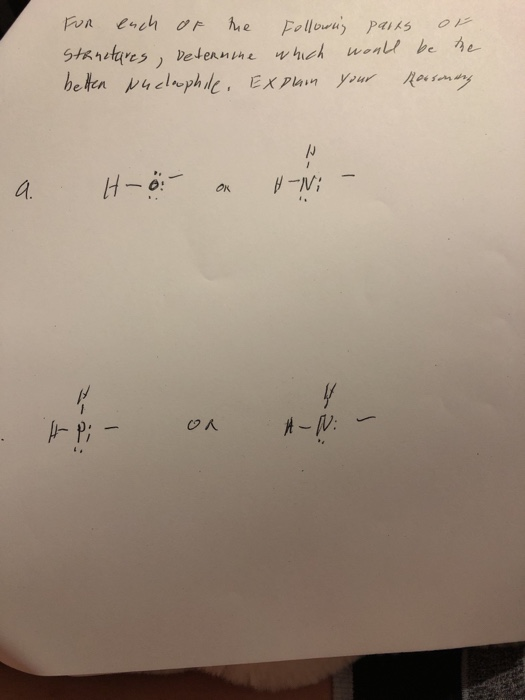 For each of the Following pairs of
Structures, Determine which would be the
better Nucleophile. Explain your Reasoning
H
a. H-Ö:⁻ or H-N: -
H H
H-P: - OR H-N: -